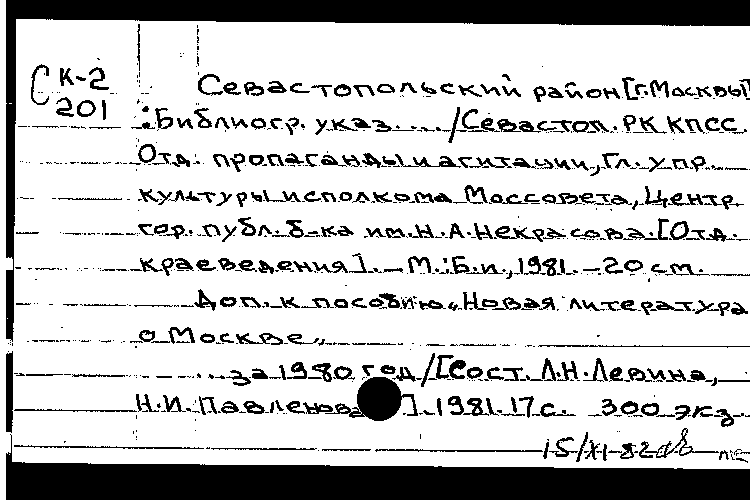 С К-2
201
Севастопольский район [г.Москвы]
: Библиогр. указ. ... / Севастоп. РК КПСС.
Отд. пропаганды и агитации, Гл. упр.
культуры исполкома Моссовета, Центр.
гор. публ. б-ка им. Н.А. Некрасова. [Отд.
краеведения]. – М.: Б.и., 1981. – 20 см.
Доп. к пособию „Новая литература
о Москве„
... за 1980 год / [Сост. Л.Н. Левина,
Н.И. Павленова]. 1981. 17 с. 300 экз.
15/XI-82